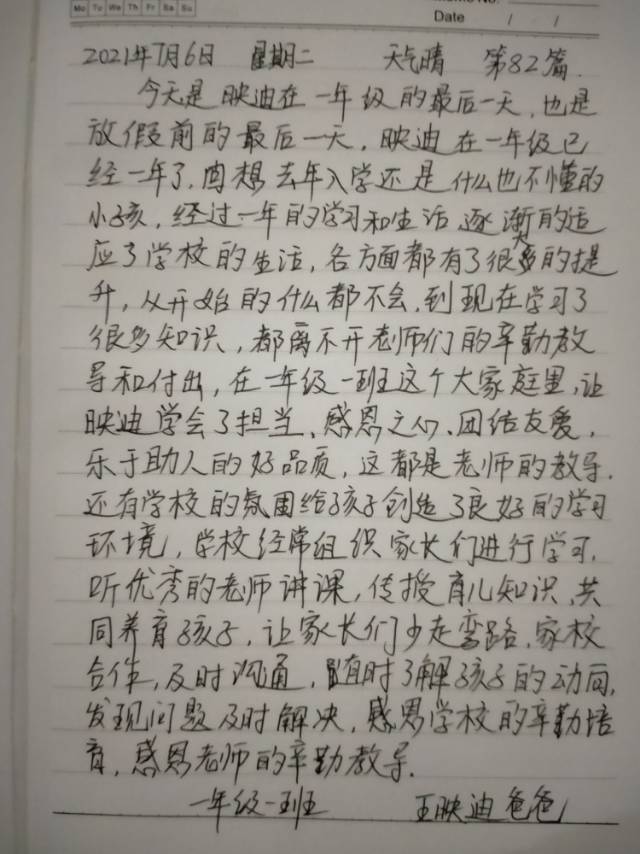 Mo Tu We Th Fr Sa Su
Date / /
2021年7月6日 星期二 天气晴 第82篇.
今天是映迪在一年级的最后一天,也是
放假前的最后一天,映迪在一年级已
经一年了,回想去年入学还是什么也不懂的
小孩,经过一年的学习和生活,逐渐的适
应了学校的生活,各方面都有了很大的提
升,从开始的什么都不会,到现在学习了
很多知识,都离不开老师们的辛勤教
导和付出,在一年级一班这个大家庭里,让
映迪学会了担当、感恩之心、团结友爱,
乐于助人的好品质,这都是老师的教导.
还有学校的氛围给孩子创造了良好的学习
环境,学校经常组织家长们进行学习,
听优秀的老师讲课,传授育儿知识,共
同养育孩子,让家长们少走弯路,家校
合作,及时沟通,随时了解孩子的动向,
发现问题及时解决,感恩学校的辛勤培
育,感恩老师的辛勤教导.
一年级一班 王映迪爸爸